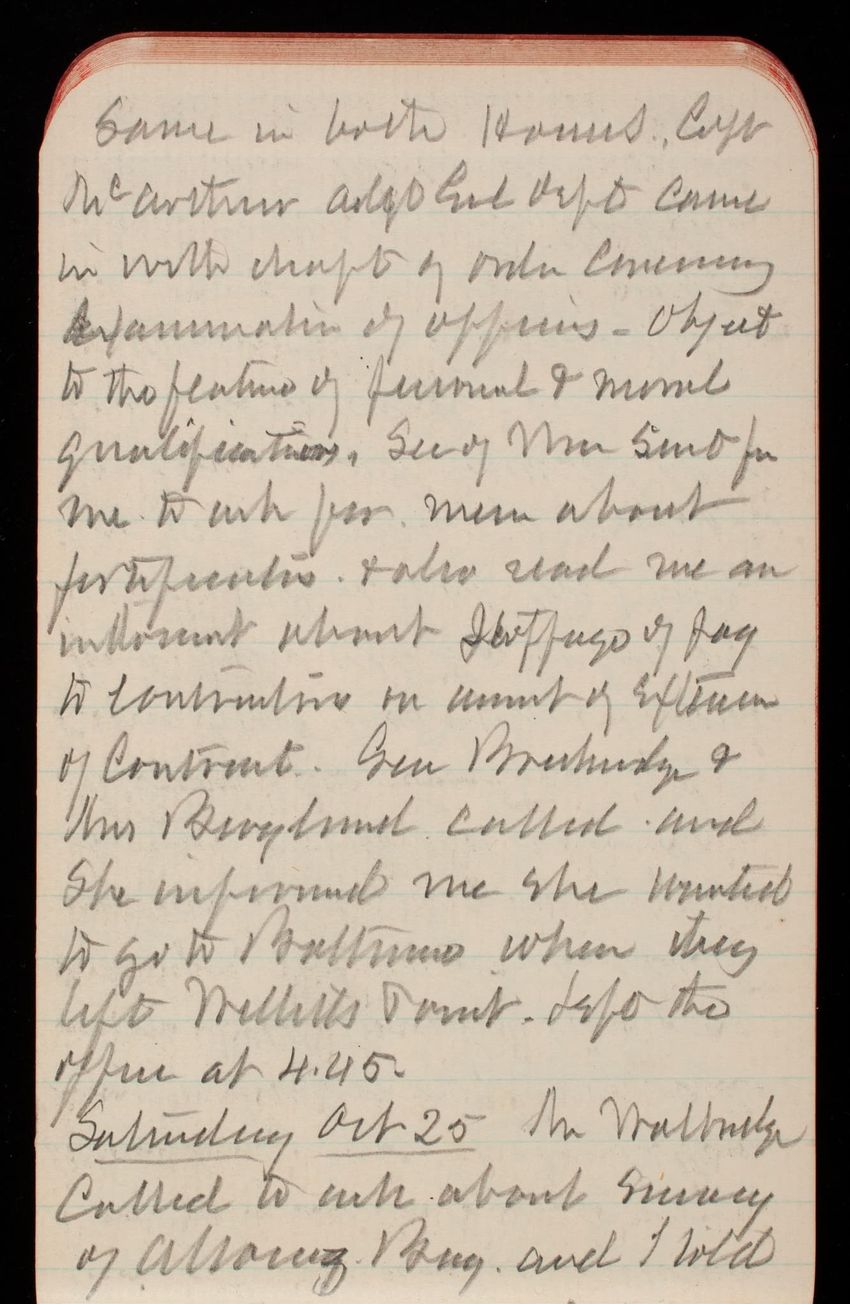 Same in both Houses, Capt
McArthur Adjt Genl Dept came
in with draft of order Concerning
Examination of officers - Object
to the features of personal & moral
qualifications. Sec of War Sent for
me to ask for mem about
fortification. & also read me an
indorsemt about Stoppage of pay
to Contractors on account of Extension
of Contract. Gen Breckinridge &
Mrs called and
She informed me she wanted
to go to Baltimore when they
left Willetts Point. Left the
office at 4.45.
Saturday Oct 25 Mr Walbridge
Called to ask about Survey
of Bay. and I told